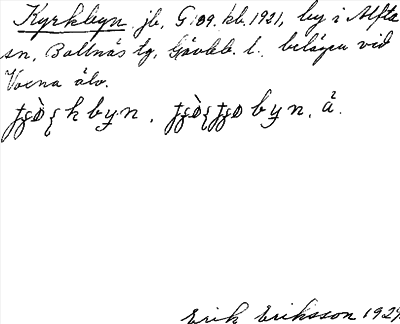 Kyrkbyn jb, G:09. kb. 1921, by i Alfta
sn, Bollnäs tg, Gävleb. l. belägen vid
Voxna älv.
byn, byn, å.
Erik Eriksson 1929.